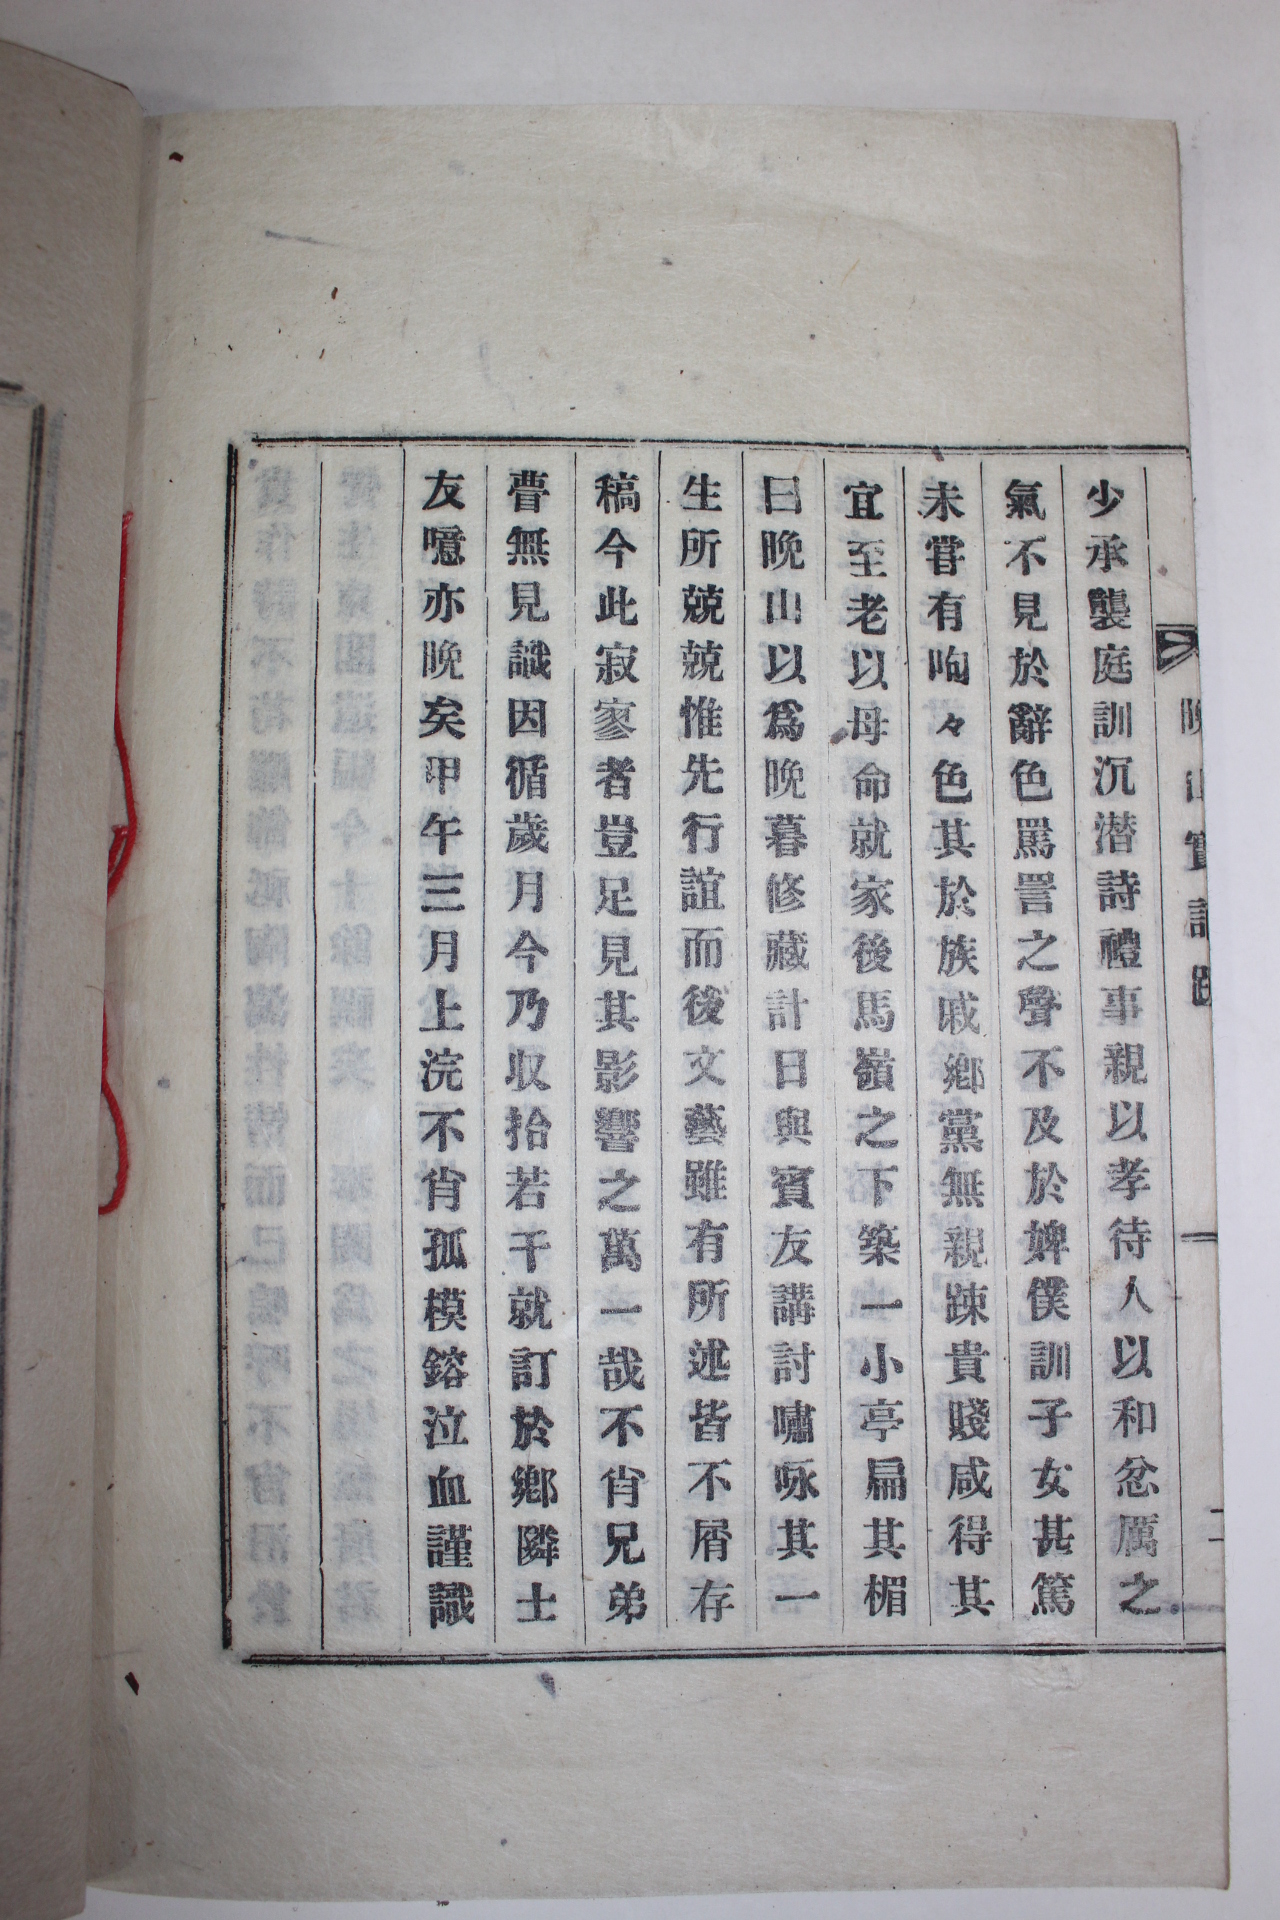 晩山實記跋
二
少承襲庭訓沉潛詩禮事親以孝待人以和忿厲之
氣不見於辭色罵詈之聲不及於婢僕訓子女甚篤
未甞有呴々色其於族戚鄉黨無親踈貴賤咸得其
宜至老以母命就家後馬嶺之下築一小亭扁其楣
曰晩山以爲晩暮修藏計日與賓友講討嘯咏其一
生所兢兢惟先行誼而後文藝雖有所述皆不屑存
稿今此寂寥者豈足見其影響之萬一哉不肖兄弟
瞢無見識因循歲月今乃収拾若干就訂於鄉隣士
友噫亦晩矣甲午三月上浣不肖孤模鎔泣血謹識